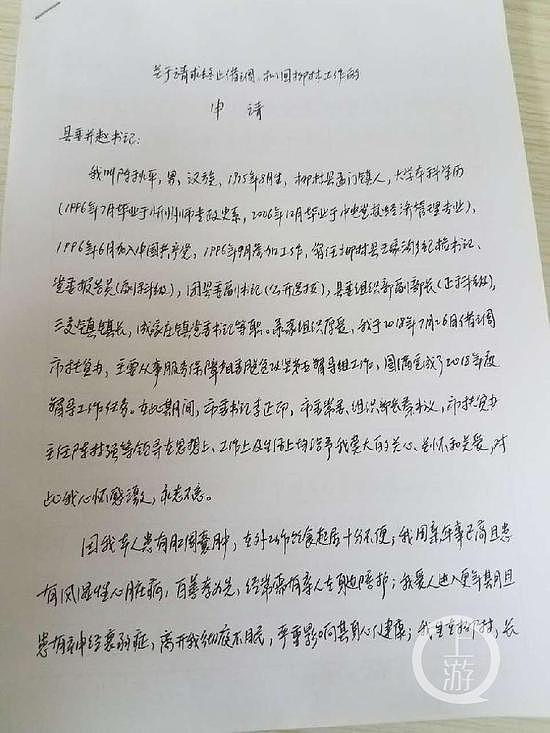 关于请求终止借调、拟回柳林工作的
申 请
县委并赵书记:
我叫陈秋平,男,汉族,1975年8月生,柳林县孟门镇人,大学本科学历
(1996年7月毕业于忻州师专政史系,2006年12月毕业于中央党校经济管理专业),
1996年6月加入中国共产党,1996年9月参加工作,曾任柳林县王家沟乡纪检书记、
党委报告员(副科级),团县委副书记(公开选拔),县委组织部副部长(正科级),
三交镇镇长,成家庄镇党委书记等职。承蒙组织厚爱,我于2018年7月26日借调
市扶贫办,主要从事服务保障市委脱贫攻坚第 督导组工作,圆满完成了2018年度
督导工作任务。在此期间,市委书记李正印,市委常委、组织部长秦书义,市扶贫办
主任陈 强等领导在思想上、工作上及生活上均给予我莫大的关心、关怀和关爱,对
此我心怀感激,永志不忘。
因我本人患有肛周囊肿,在外工作饮食起居十分不便;我因亲年事已高且患
有风湿性心脏病,百善孝为先,经常需有亲人在身边陪护;我爱人进入更年期且
患有神经衰弱症,离开我彻夜不眠,严重影响其身心健康;我生在柳林,长
上游